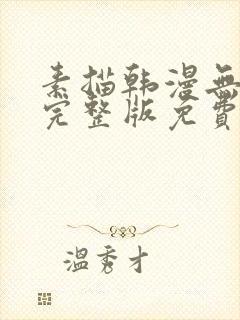 素描韩漫無
完整版免費
温秀才